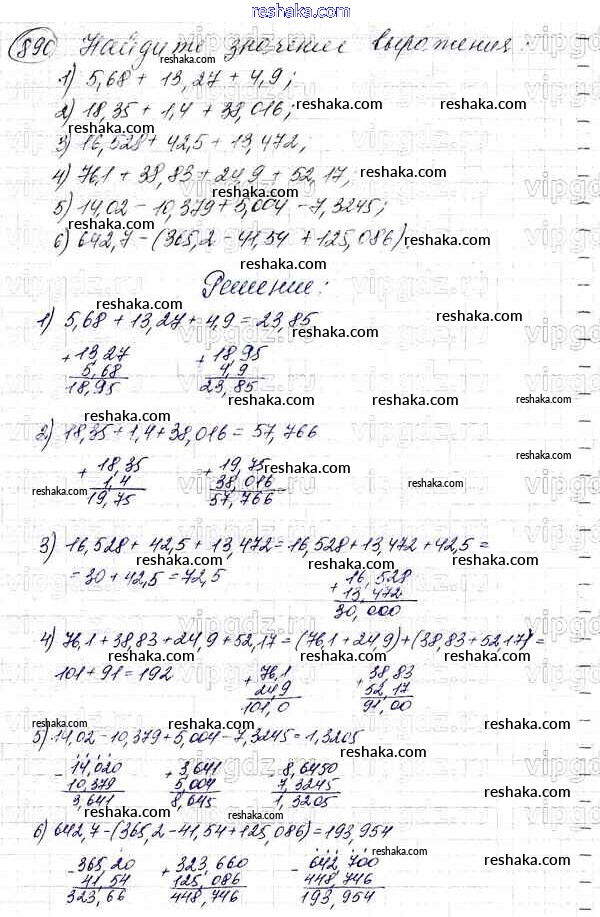 reshaka.com
890 Найдите значение выражения:
1) 5,68 + 13,27 + 4,9;
2) 18,35 + 1,4 + 38,016;
3) 16,528 + 42,5 + 13,472;
4) 76,1 + 38,83 + 24,9 + 52,17;
5) 14,02 - 10,379 + 5,004 - 7,3245;
6) 642,7 - (365,2 - 41,54 + 125,086).
Решение:
1) 5,68 + 13,27 + 4,9 = 23,85
+ 13,27 + 18,95
5,68 4,9
18,95 23,85
2) 18,35 + 1,4 + 38,016 = 57,766
+ 18,35 + 19,75
1,4 38,016
19,75 57,766
3) 16,528 + 42,5 + 13,472 = 16,528 + 13,472 + 42,5 =
= 30 + 42,5 = 72,5
+ 16,528
13,472
30,000
4) 76,1 + 38,83 + 24,9 + 52,17 = (76,1 + 24,9) + (38,83 + 52,17) =
101 + 91 = 192
+ 76,1 + 38,83
24,9 52,17
101,0 91,00
5) 14,02 - 10,379 + 5,004 - 7,3245 = 1,3205
- 14,020 + 3,641 - 8,6450
10,379 5,004 7,3245
3,641 8,645 1,3205
6) 642,7 - (365,2 - 41,54 + 125,086) = 193,954
- 365,20 + 323,660 - 642,700
41,54 125,086 448,746
323,66 448,746 193,954
reshaka.com